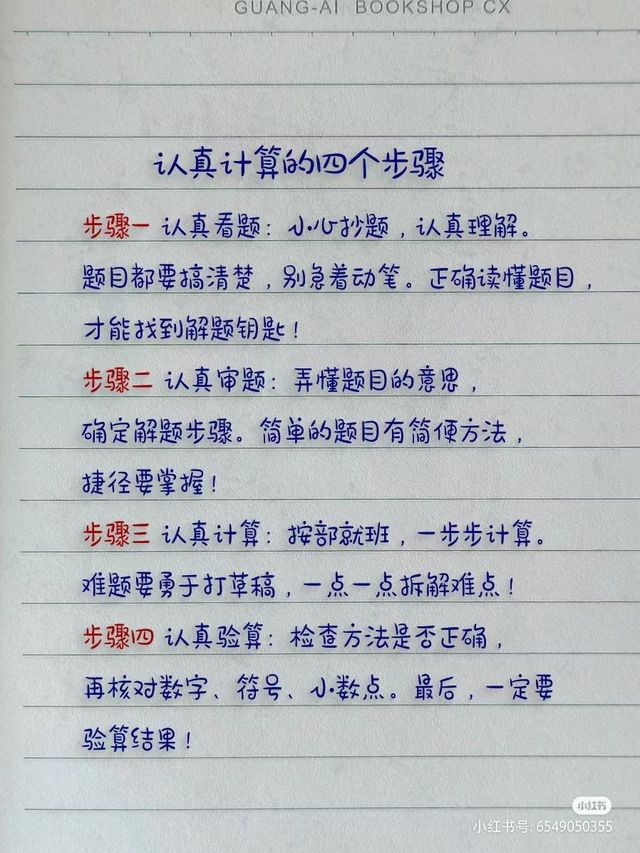 GUANG-AI BOOKSHOP CX
认真计算的四个步骤
步骤一 认真看题：小心抄题，认真理解。
题目都要搞清楚，别急着动笔。正确读懂题目，
才能找到解题钥匙！
步骤二 认真审题：弄懂题目的意思，
确定解题步骤。简单的题目有简便方法，
捷径要掌握！
步骤三 认真计算：按部就班，一步步计算。
难题要勇于打草稿，一点一点拆解难点！
步骤四 认真验算：检查方法是否正确，
再核对数字、符号、小数点。最后，一定要
验算结果！
小红书
小红书号: 6549050355